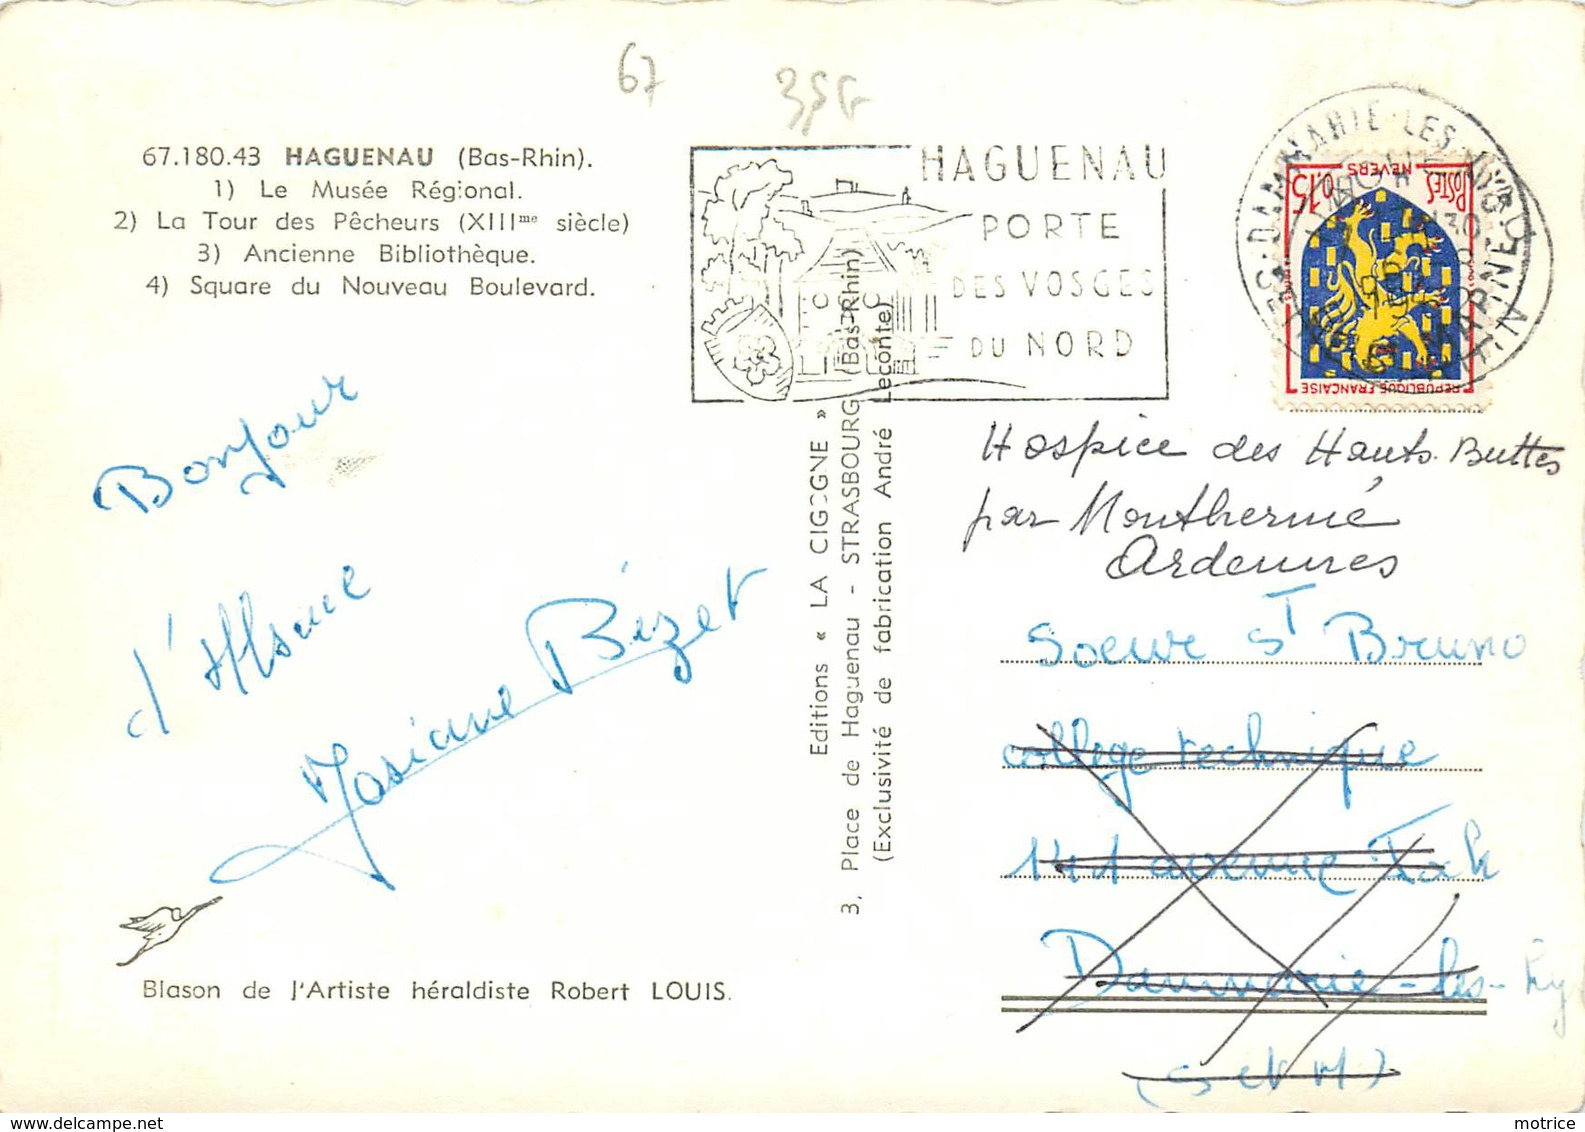 67
67.180.43 HAGUENAU (Bas-Rhin).
1) Le Musée Régional.
2) La Tour des Pêcheurs (XIIIme siècle)
3) Ancienne Bibliothèque.
4) Square du Nouveau Boulevard.
HAGUENAU
PORTE
DES VOSGES
DU NORD
DAMMARIE-LES-LYS
POSTES 0,15
NEVERS
REPUBLIQUE FRANÇAISE
Bonjour
d'Alsace
Josiane Bizet
Blason de l'Artiste héraldiste Robert LOUIS.
Editions « LA CIGOGNE »
3, Place de Haguenau - STRASBOURG (Bas-Rhin)
(Exclusivité de fabrication André Leconte)
Hospice des Hauts-Buttes
par Monthermé
Ardennes
Soeur St Bruno
collège technique
141 avenue Foch
Dammarie-les-Ly
(S et M)
motrice